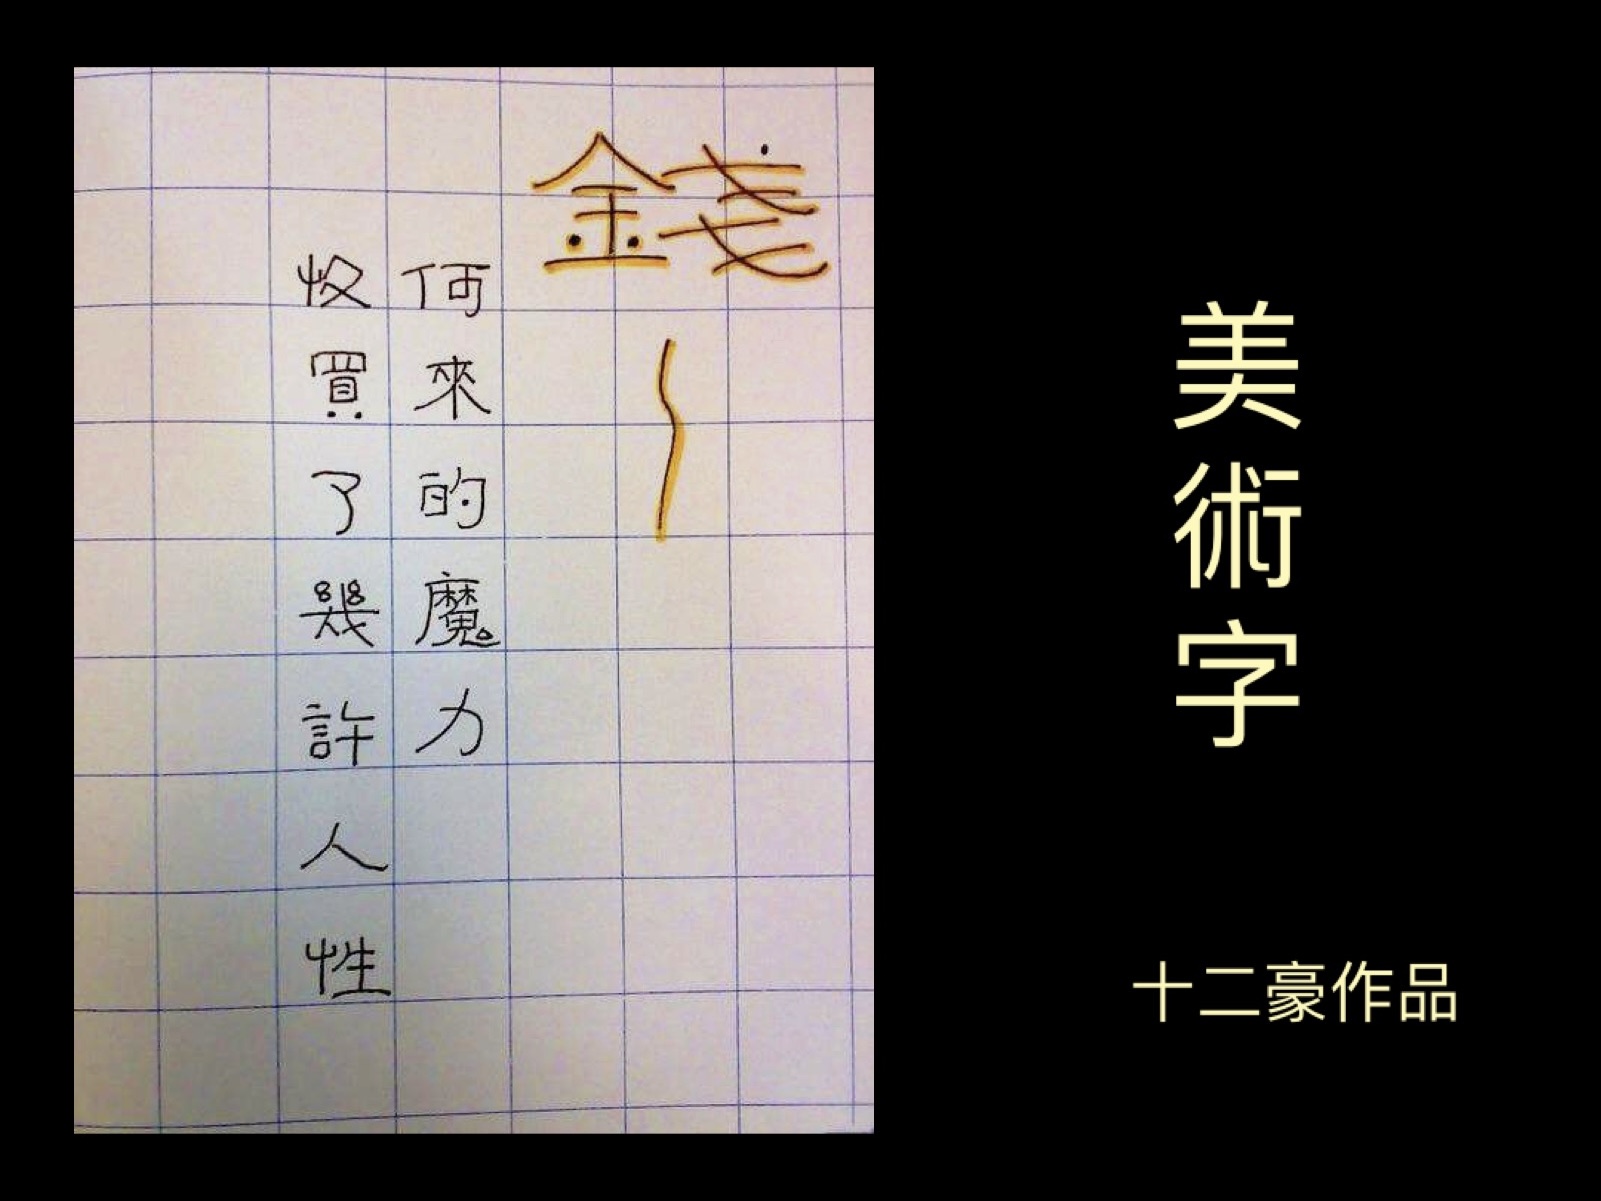 錢
何來的魔力
收買了幾許人性
美術字
十二豪作品